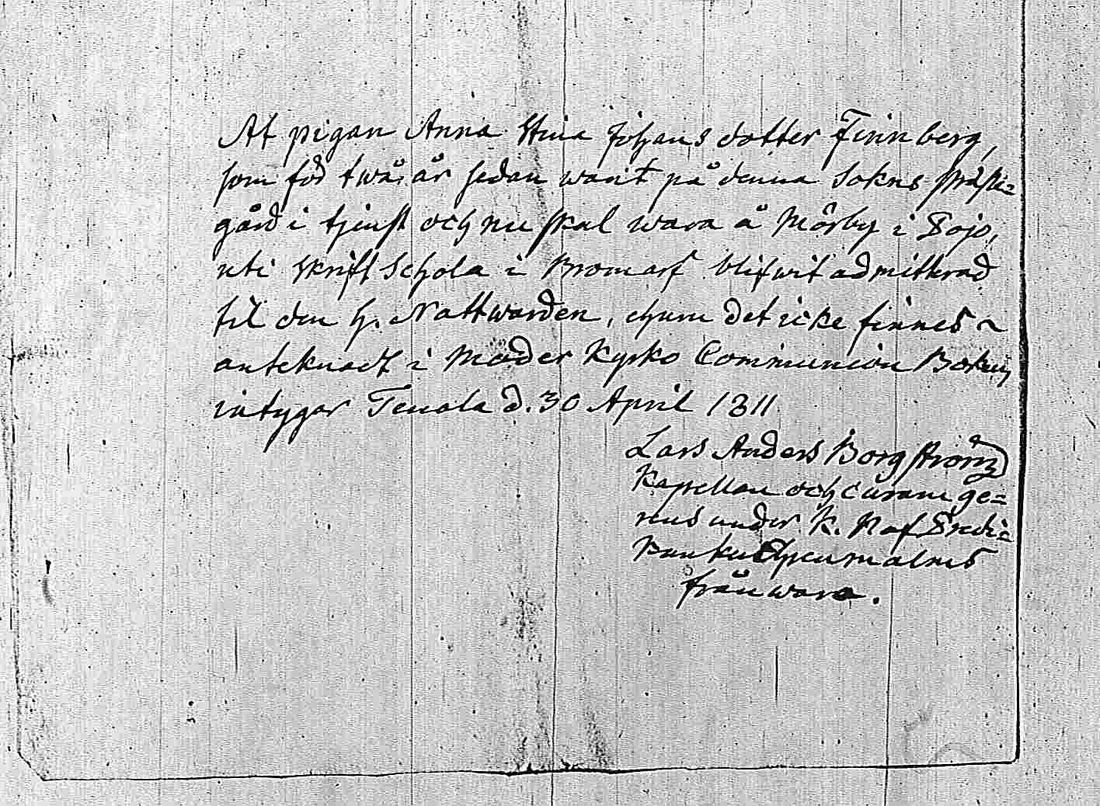 At pigan Anna Stina Johans dotter Finnberg,
som för twå år sedan warit på denna Sokns Präste-
gård i tjenst och nu skal wara å Mörby i Pojo,
uti Skrift Schola i Bromarf blifwit admitterad
til den H. Nattwarden, ehuru det icke finnes
antecknadt i Moder Kyrko Communion Boken,
intygar Tenala d. 30 April 1811
Lars Anders Borgström
Kapellan och curam ge-
rens under K. Hof Predi-
kanten Ehrenmalms
frånwaro.